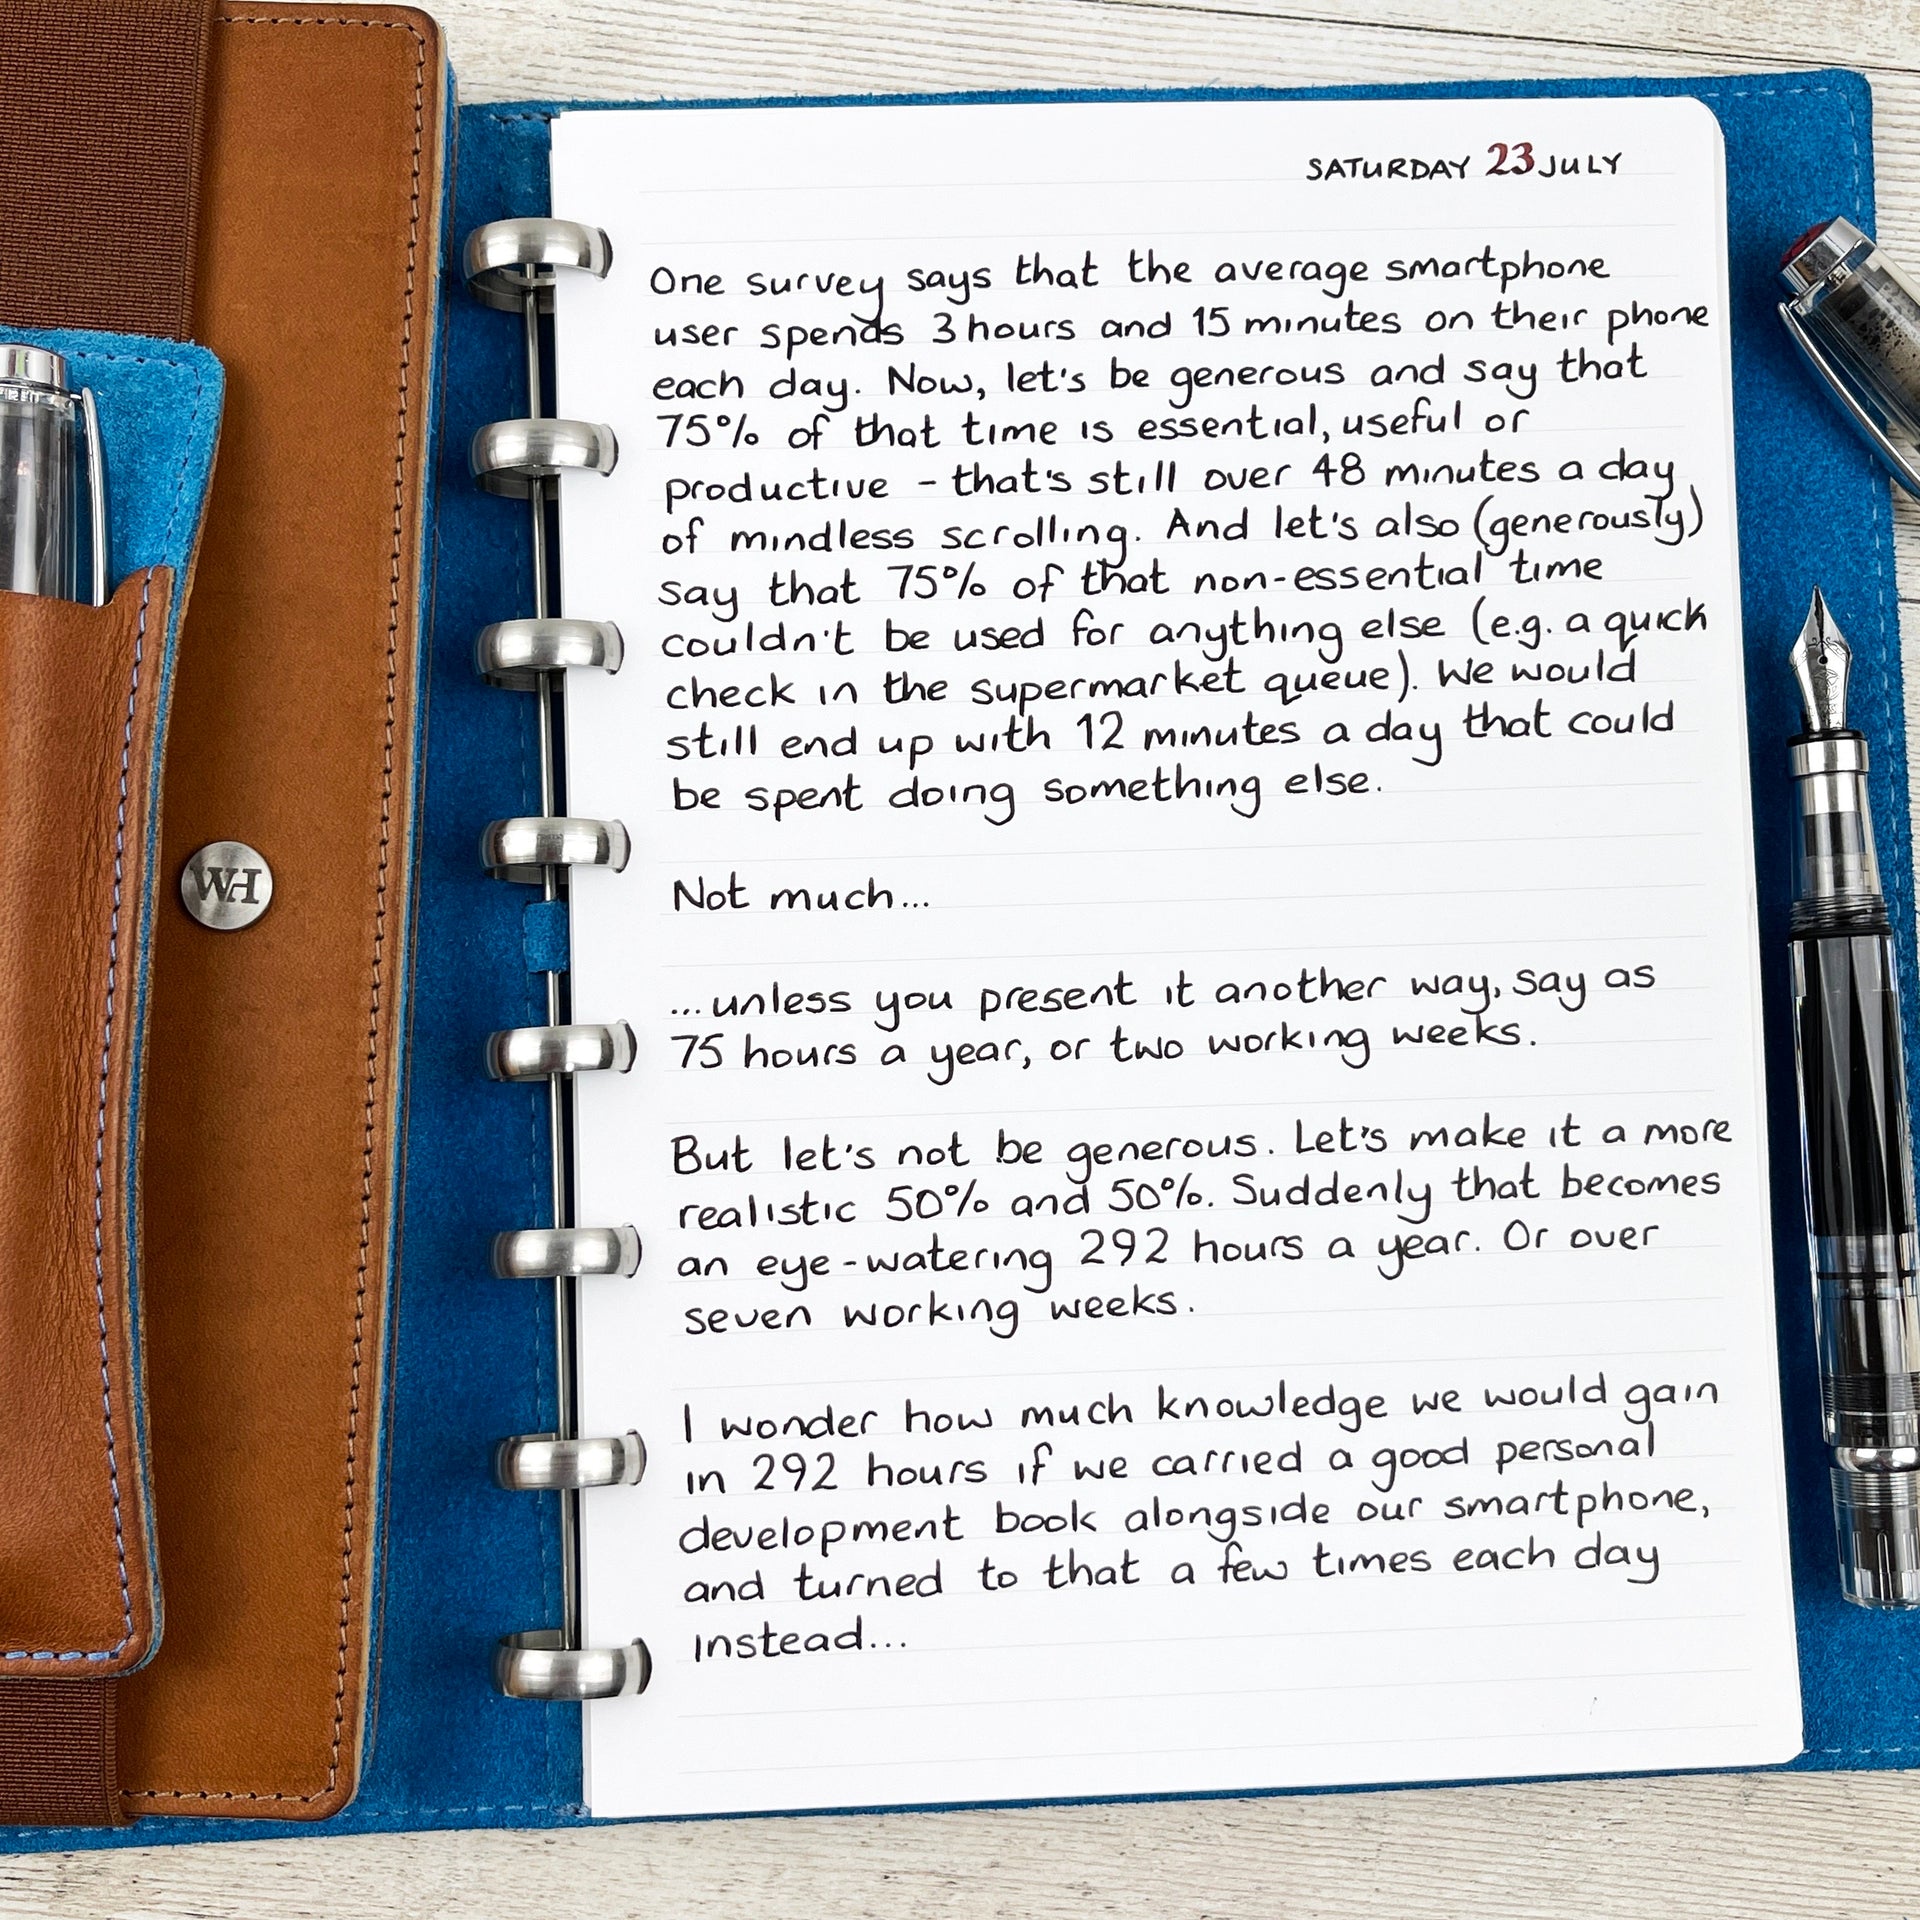 SATURDAY 23 JULY
One survey says that the average smartphone
user spends 3 hours and 15 minutes on their phone
each day. Now, let's be generous and say that
75% of that time is essential, useful or
productive - that's still over 48 minutes a day
of mindless scrolling. And let's also (generously)
say that 75% of that non-essential time
couldn't be used for anything else (e.g. a quick
check in the supermarket queue). We would
still end up with 12 minutes a day that could
be spent doing something else.
Not much...
...unless you present it another way, say as
75 hours a year, or two working weeks.
But let's not be generous. Let's make it a more
realistic 50% and 50%. Suddenly that becomes
an eye-watering 292 hours a year. Or over
seven working weeks.
I wonder how much knowledge we would gain
in 292 hours if we carried a good personal
development book alongside our smartphone,
and turned to that a few times each day
instead...
WH